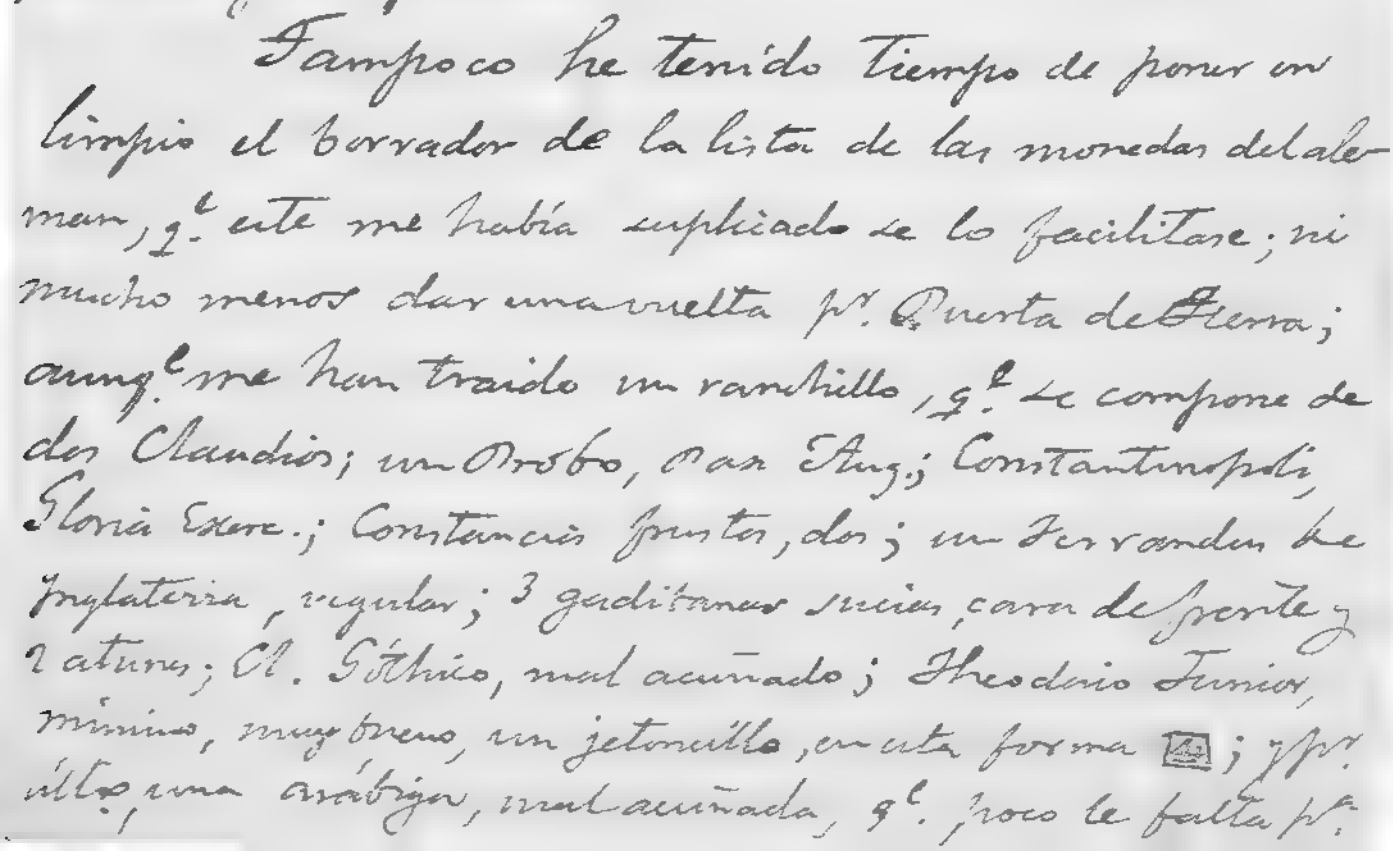 Tampoco he tenido tiempo de poner en
limpio el borrador de la lista de las monedas del ale-
man, q.e este me había suplicado se lo facilitase; ni
mucho menos dar una vuelta p.r Puerta de Tierra;
aunq.e me han traido un ranchillo, q.e se compone de
dos Claudios; un Probo, Pax Aug.; Constantinopoli,
Gloria Exerc.; Constancios frustos, dos; un Ferrandus de
Inglaterra, regular; 3 gaditanas sucias, cara de frente y
2 atunes; Cl. Góthico, mal acuñado; Theodosio Junior,
mínimo, muy bueno, un jetoncillo, en esta forma ; y p.r
últ.o, una arábiga, mal acuñada, q.e poco le falta p.a